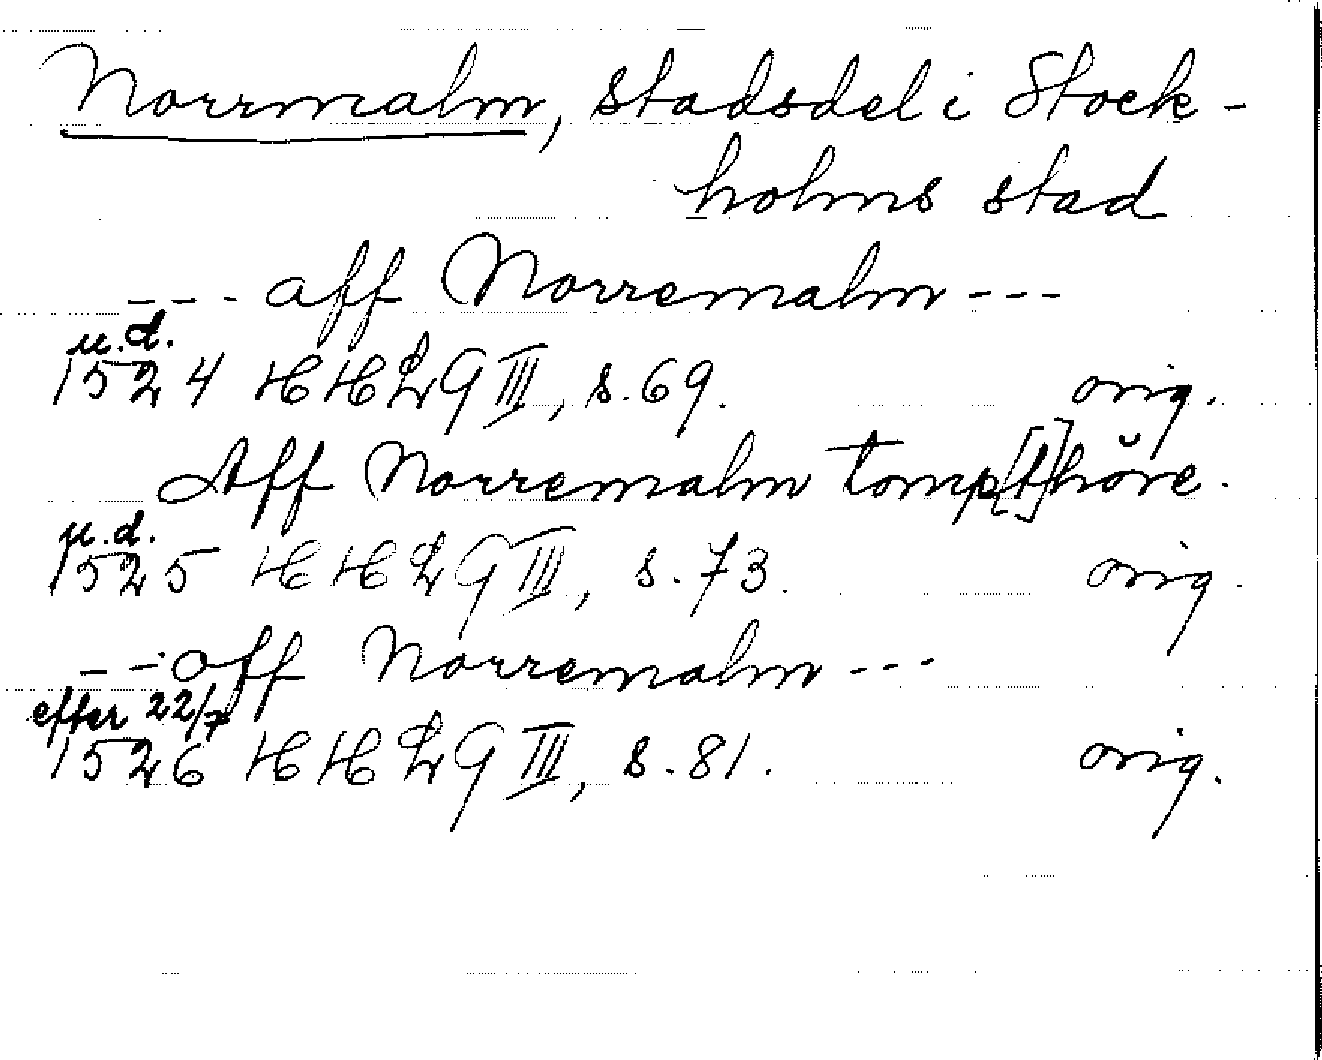 Norrmalm, stadsdel i Stock-
holms stad
--- aff Norremalm ---
u.d.
1524 HHLQ III, s. 69. orig.
Aff Norremalm tomp[t]höre.
u.d.
1525 HHLQ III, s. 73. orig.
--- aff Norremalm ---
efter 22/7
1526 HHLQ III, s. 81. orig.